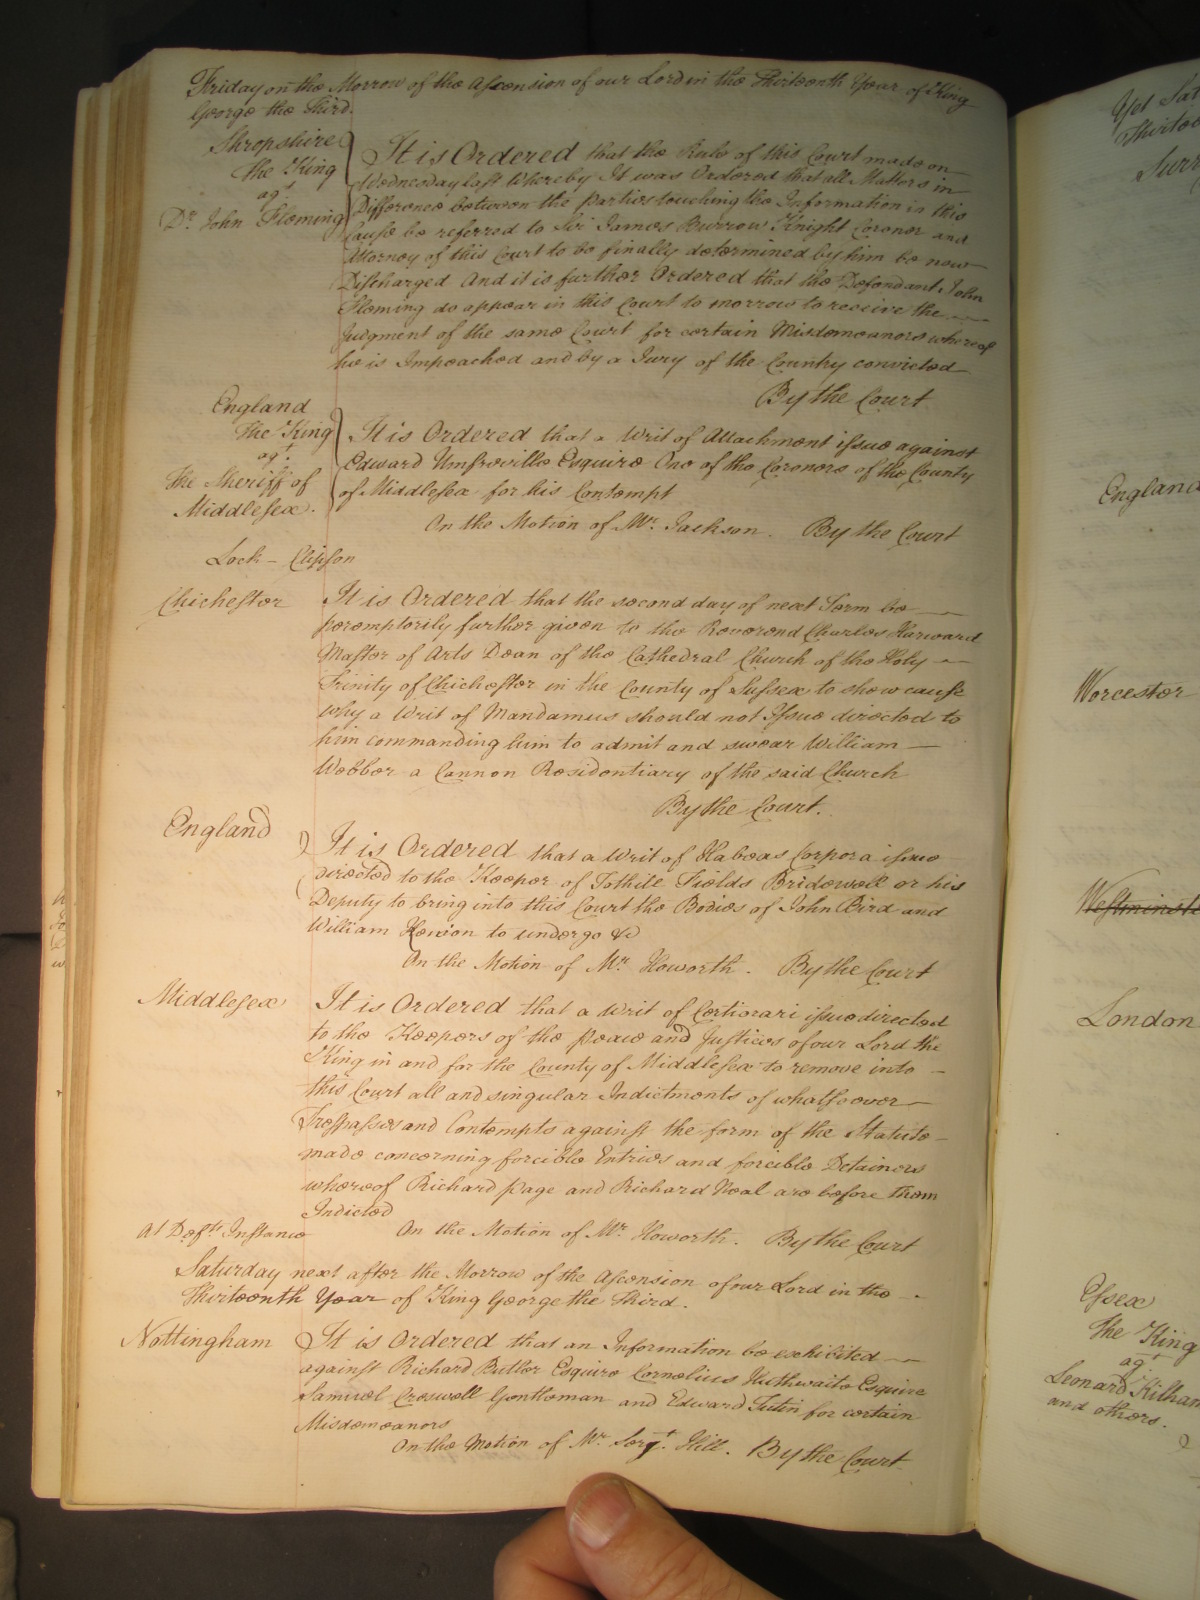 Friday on the Morrow of the Ascension of our Lord in the Thirteenth Year of King
George the Third.
Shropshire
The King
agt
Dr. John Fleming
It is Ordered that the Rule of this Court made on
Wednesday last Whereby It was Ordered that all Matters in
Difference between the parties touching the Information in this
Cause be referred to Sir James Burrow Knight Coroner and
Attorney of this Court to be finally determined by him be now
Discharged And it is further Ordered that the Defendant John
Fleming do appear in this Court to morrow to receive the
Judgment of the same Court for certain Misdemeanors whereof
he is Impeached and by a Jury of the Country convicted
By the Court
England
The King
agt.
The Sheriff of
Middlesex.
It is Ordered that a Writ of Attachment issue against
Edward Umfreville Esquire One of the Coroners of the County
of Middlesex for his Contempt
On the Motion of Mr. Jackson. By the Court
Lock - Clipson
Chichester
It is Ordered that the second day of next Term be
peremptorily further given to the Reverend Charles Harward
Master of Arts Dean of the Cathedral Church of the Holy
Trinity of Chichester in the County of Sussex to show cause
why a Writ of Mandamus should not Issue directed to
him commanding him to admit and swear William
Webber a Cannon Residentiary of the said Church
By the Court.
England
It is Ordered that a Writ of Habeas Corpora issue
directed to the Keeper of Tothile Fields Bridewell or his
Deputy to bring into this Court the Bodies of John Bird and
William to undergo &c
On the Motion of Mr. Howorth. By the Court
Middlesex
It is Ordered that a Writ of Certiorari issue directed
to the Keepers of the Peace and Justices of our Lord the
King in and for the County of Middlesex to remove into
this Court all and singular Indictments of whatsoever
Trespasses and Contempts against the form of the Statute
made concerning forcible Entries and forcible Detainers
whereof Richard Page and Richard Neal are before them
Indicted
At Defts. Instance
On the Motion of Mr. Howorth. By the Court
Saturday next after the Morrow of the Ascension of our Lord in the
Thirteenth Year of King George the Third.
Nottingham
It is Ordered that an Information be exhibited
against Richard Butler Esquire Cornelius Huthwaite Esquire
Samuel Creswell Gentleman and Edward Tutin for certain
Misdemeanors
On the Motion of Mr. Serjt. Hill. By the Court
Yet Sat
Thirtee
Surr
England
Worcester
Westminste
London
Essex
The King
agt
Leonard Kilham
and others.